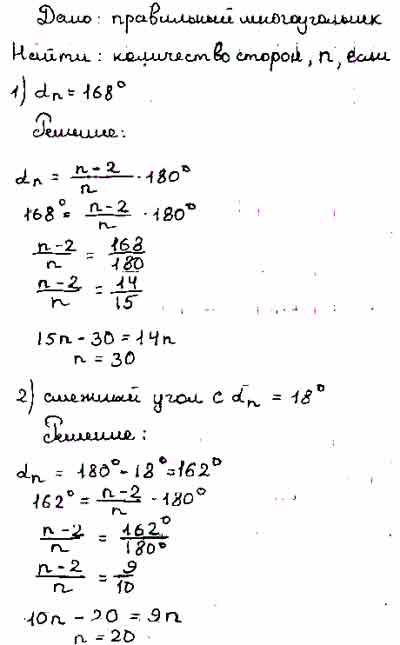 Дано: правильный многоугольник
Найти: количество сторон, n, если
1) αn = 168°
Решение:
αn = n-2/n · 180°
168° = n-2/n · 180°
n-2/n = 168/180
n-2/n = 14/15
15n - 30 = 14n
n = 30
2) смежный угол с αn = 18°
Решение:
αn = 180° - 18° = 162°
162° = n-2/n · 180°
n-2/n = 162°/180°
n-2/n = 9/10
10n - 20 = 9n
n = 20